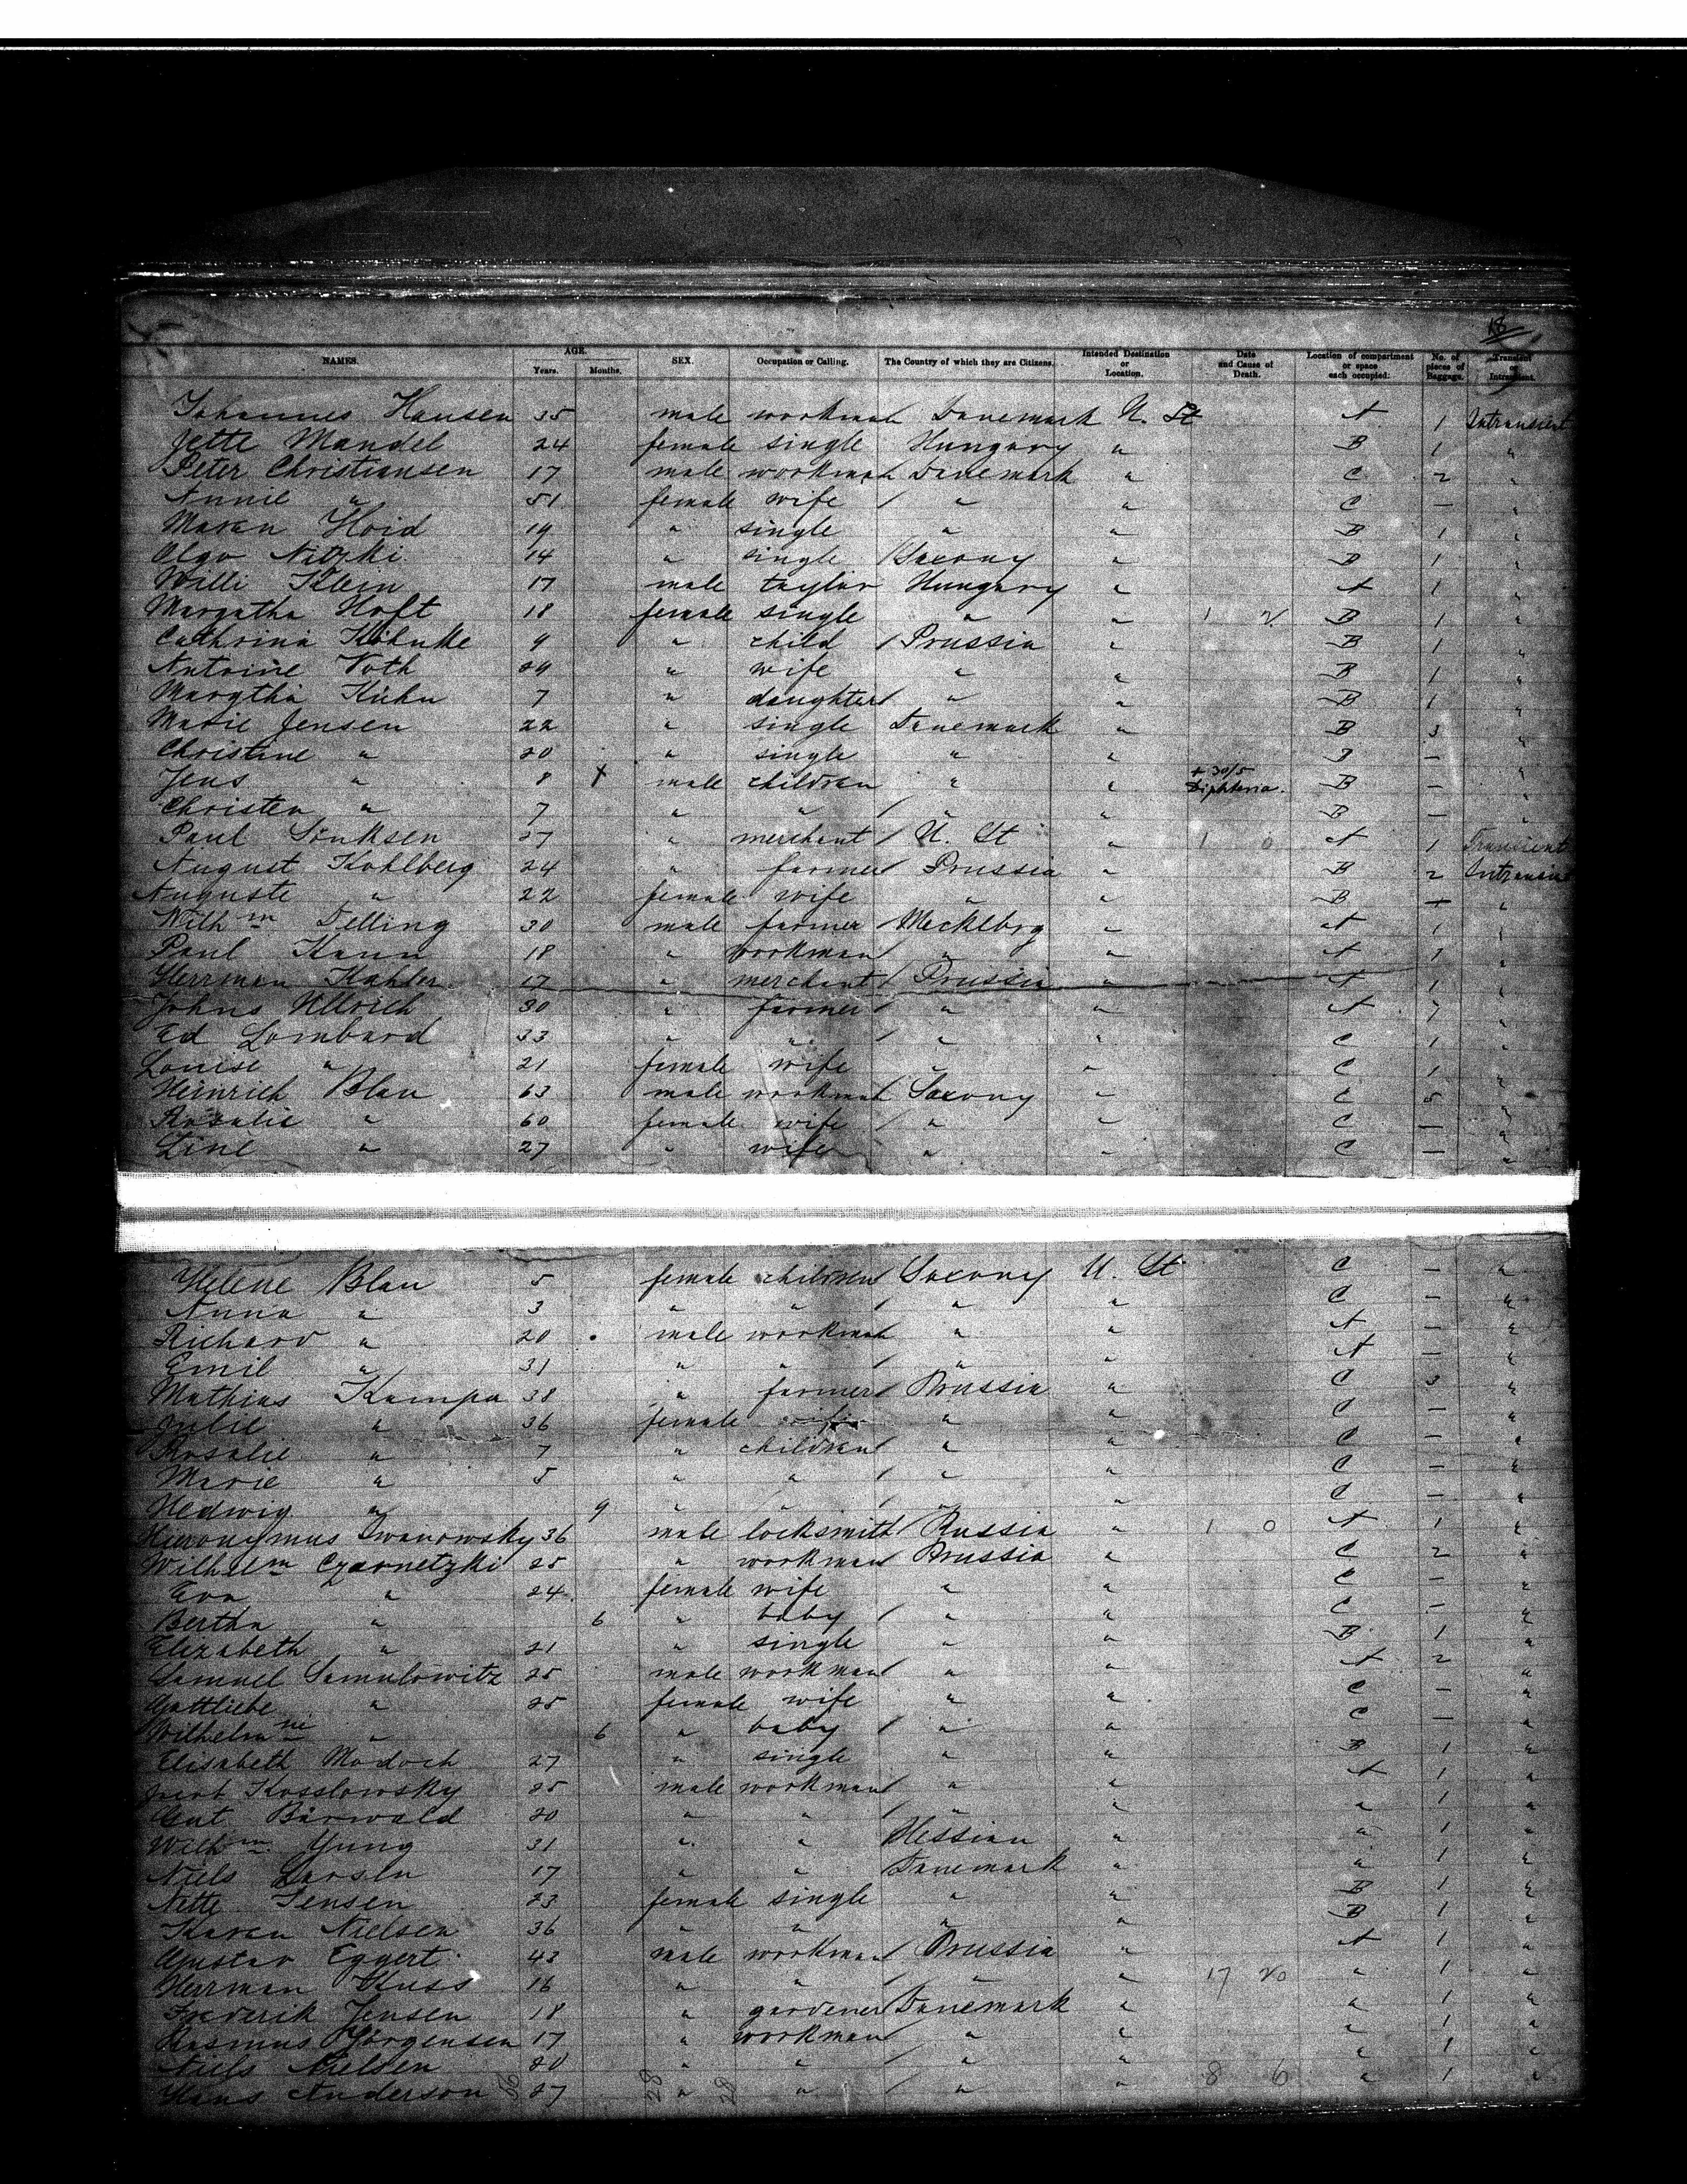 18
NAMES. AGE. Years. Months. SEX. Occupation or Calling. The Country of which they are Citizens. Intended Destination or Location. Date and Cause of Death. Location of compartment or space each occupied. No. of pieces of Baggage. Transient or Intransient.
Johannes Hansen 35 male workman Danemark U. St A 1 Intransient
Jette Mandel 24 female single Hungary " B 1 "
Peter Christiansen 17 male workman Danemark " C 2 "
Annie " 51 female wife " " C — "
Maren Hoid 19 " single " " B 1 "
Olga Nitzki 14 " single Saxony " B 1 "
Willi Klein 17 male taylor Hungary " A 1 "
Margatha Hoft 18 female single " " 1 2 B 1 "
Cathrina Köhnke 9 " child Prussia " B 1 "
Antoine Voth 29 " wife " " B 1 "
Margtha Kühn 7 " daughter " " B 1 "
Marie Jensen 22 " single Danemark " B 3 "
Christine " 20 " single " " B — "
Jens " 8 male children " " + 30/5 Diphteria. B — "
Christen " 7 " " " " B — "
Paul Sönksen 27 " merchant U. St " 1 0 A 1 Transient
August Kohlberg 24 " farmer Prussia " B 2 Intransient
Auguste " 22 female wife " " B — "
Wilhm Telling 30 male farmer Mecklbrg " A 1 "
Paul Kann 18 " workman " " A 1 "
Herrman Kahler 17 " merchant Prussia " A 1 "
Johns Ullrich 30 " farmer " " A "
Ed Lombard 33 " " " " C 1 "
Louise " 21 female wife " " C 1 "
Heinrich Blau 63 male workman Saxony " C 5 "
Rosalie " 60 female wife " " C — "
Line " 27 " wife " " C — "
Helene Blau 5 female children Saxony U. St C — "
Anna " 3 " " " " C — "
Richard " 20 male workman " " A — "
Emil " 31 " " " " A — "
Mathias Kampa 38 " farmer Prussia " C 3 "
Julie " 36 female wife " " C — "
Rosalie " 7 " children " " C — "
Marie " 5 " " " " C — "
Hedwig " 9 " " " " C — "
Hieronymus Iwanowsky 36 male locksmith Russia " 1 0 A 1 "
Wilhelm Czarnetzki 25 " workman Prussia " C 2 "
Eva " 24 female wife " " C — "
Bertha " 6 " baby " " C — "
Elizabeth " 21 " single " " B 1 "
Samuel Samulowitz 25 male workman " " A 2 "
Gottliebe " 25 female wife " " C — "
Wilhelmine " 6 " baby " " C — "
Elisabeth Modoch 27 " single " " B 1 "
Kosslowsky 25 male workman " " A 1 "
Bärwald 20 " " " " " 1 "
Wilhm Yung 31 " " Hessian " " 1 "
Niels Larsen 17 " " Danemark " " 1 "
Nette Jensen 23 female single " " B 1 "
Karen Nielsen 36 " " " " B 1 "
Gustav Eggert 43 male workman Prussia " A 1 "
Herrman Kuss 16 " " " " 17 20 " 1 "
Frederik Jensen 18 " gardener Danemark " " 1 "
Rasmus Jörgensen 17 " workman " " " 1 "
Niels Nielsen 20 " " " " " 1 "
Hans Anderson 27 " " " " 8 6 " 1 "
56 28 28